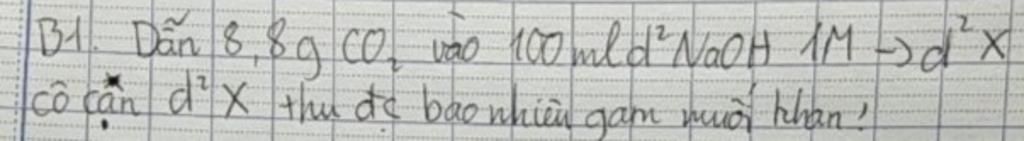 B1. Dẫn 8,8g CO₂ vào 100ml d² NaOH 1M → d² X
cô cặn d² X thu đc bao nhiêu gam muối khan!